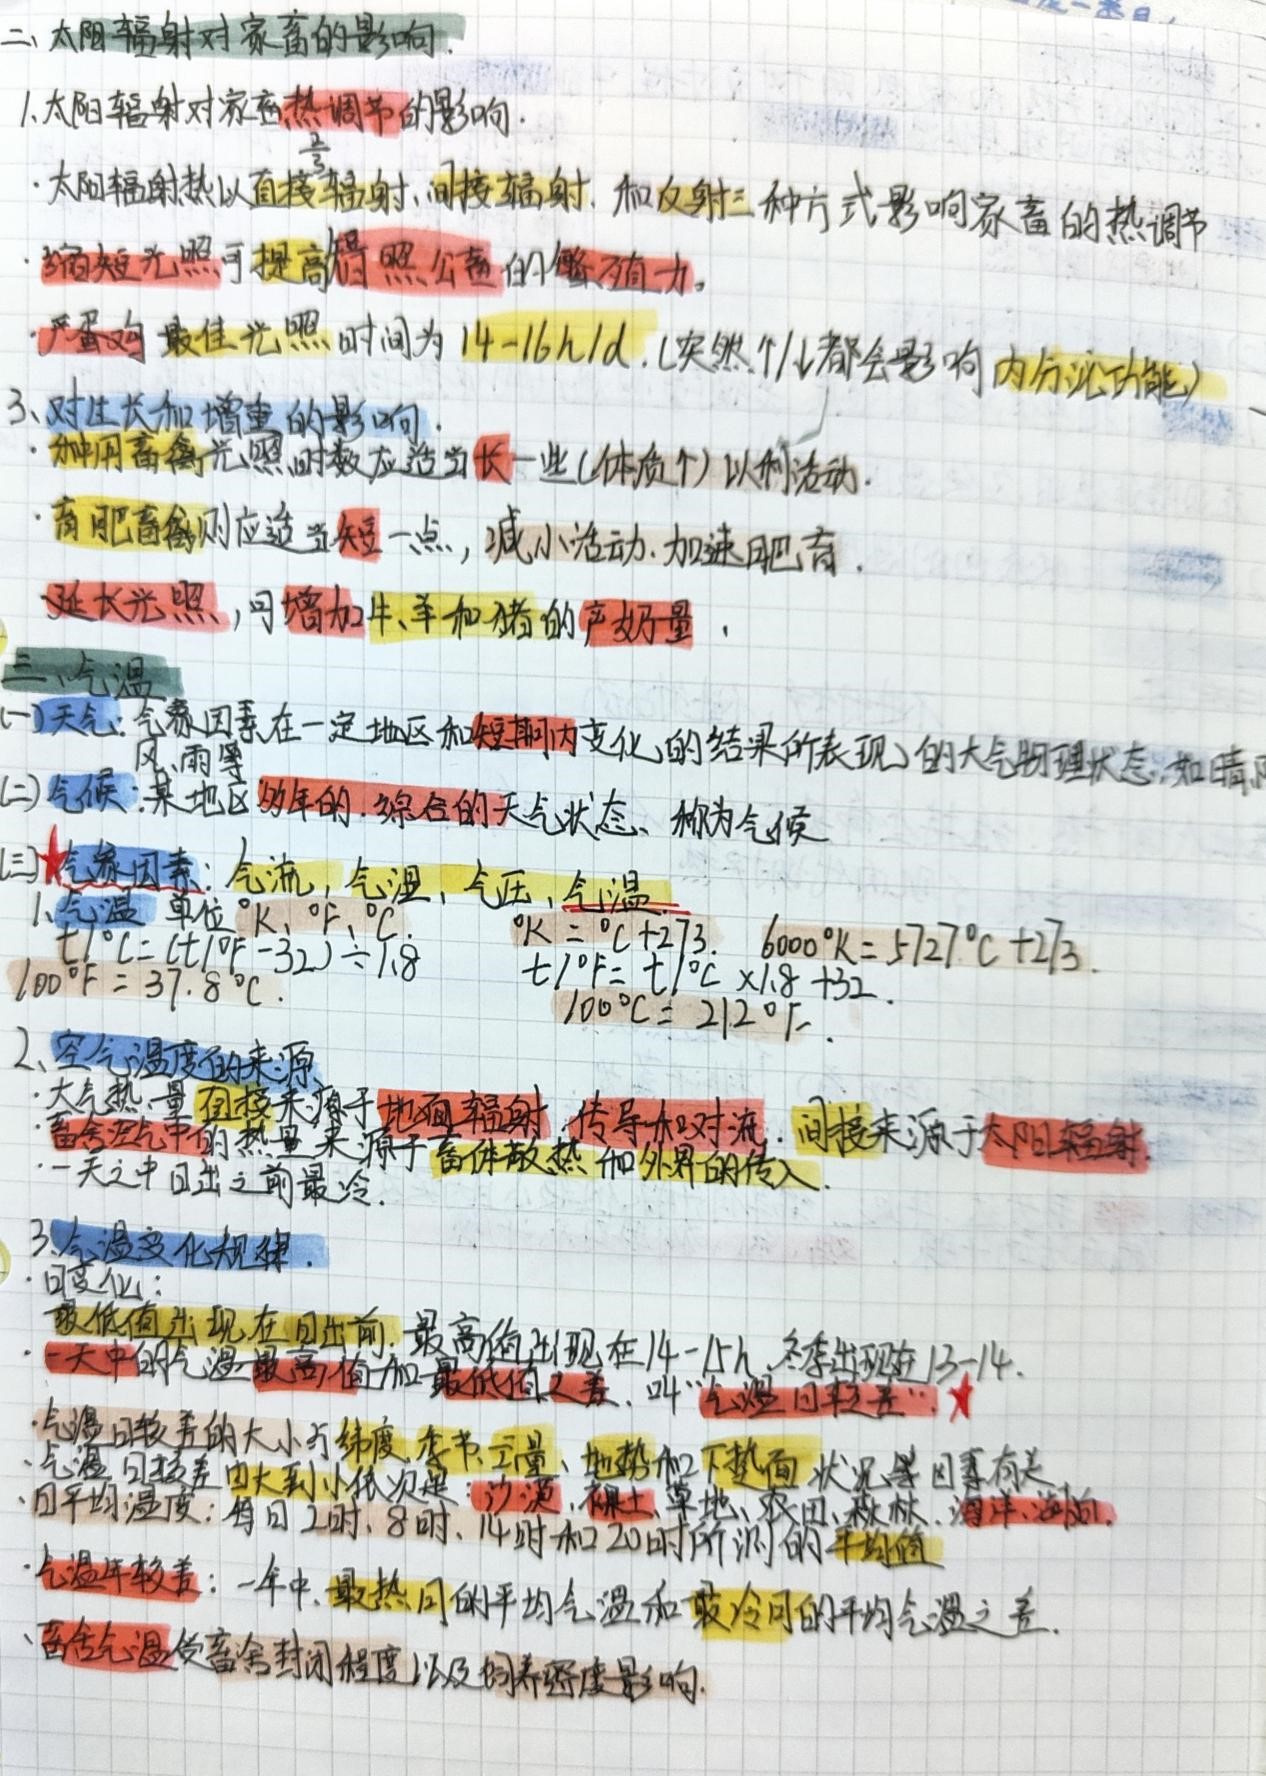 二、太阳辐射对家畜的影响.
1.太阳辐射对家畜热调节的影响.
2/3
·太阳辐射热以直接辐射、间接辐射、和反射三种方式影响家畜的热调节
·缩短光照可提高短日照公畜的繁殖力。
·产蛋鸡最佳光照时间为14-16h/d.(突然↑/↓都会影响内分泌功能)
3、对生长和增重的影响.
·种用畜禽光照时数应适当长一些(体质↑)以利活动.
·育肥畜禽则应适当短一点,减小活动.加速肥育.
延长光照,可增加牛、羊和猪的产奶量.
三、气温
(一)天气:气象因素在一定地区和短期内变化的结果所表现的大气物理状态,如晴
风、雨等
(二)气候:某地区多年的.综合的天气状态、称为气候
(三)★气象因素:气流,气湿,气压,气温.
1、气温 单位°K、°F、°C.
°K=°C+273. 6000°K=5727°C+273.
t/°C=(t/°F-32)÷1.8
t/°F=t/°C×1.8+32.
100°F=37.8°C.
100°C=212°F.
2、空气温度的来源
·大气热量直接来源于地面辐射.传导和对流.间接来源于太阳辐射.
·畜舍空气中的热量来源于畜体散热和外界的传入.
·一天之中日出之前最冷.
3.气温变化规律.
·日变化:
最低值出现在日出前.最高值出现在14-15h,冬季出现在13-14.
·一天中的气温最高值和最低值之差.叫"气温日较差".★
·气温日较差的大小与纬度、季节、云量、地势和下垫面状况等因素有关
·气温日较差由大到小依次是:沙漠、裸土、草地、农田、森林.海洋、
·日平均温度:每日2时、8时、14时和20时所测的平均值
·气温年较差:一年中.最热月的平均气温和最冷月的平均气温之差.
·畜舍气温受畜舍封闭程度以及饲养密度影响.